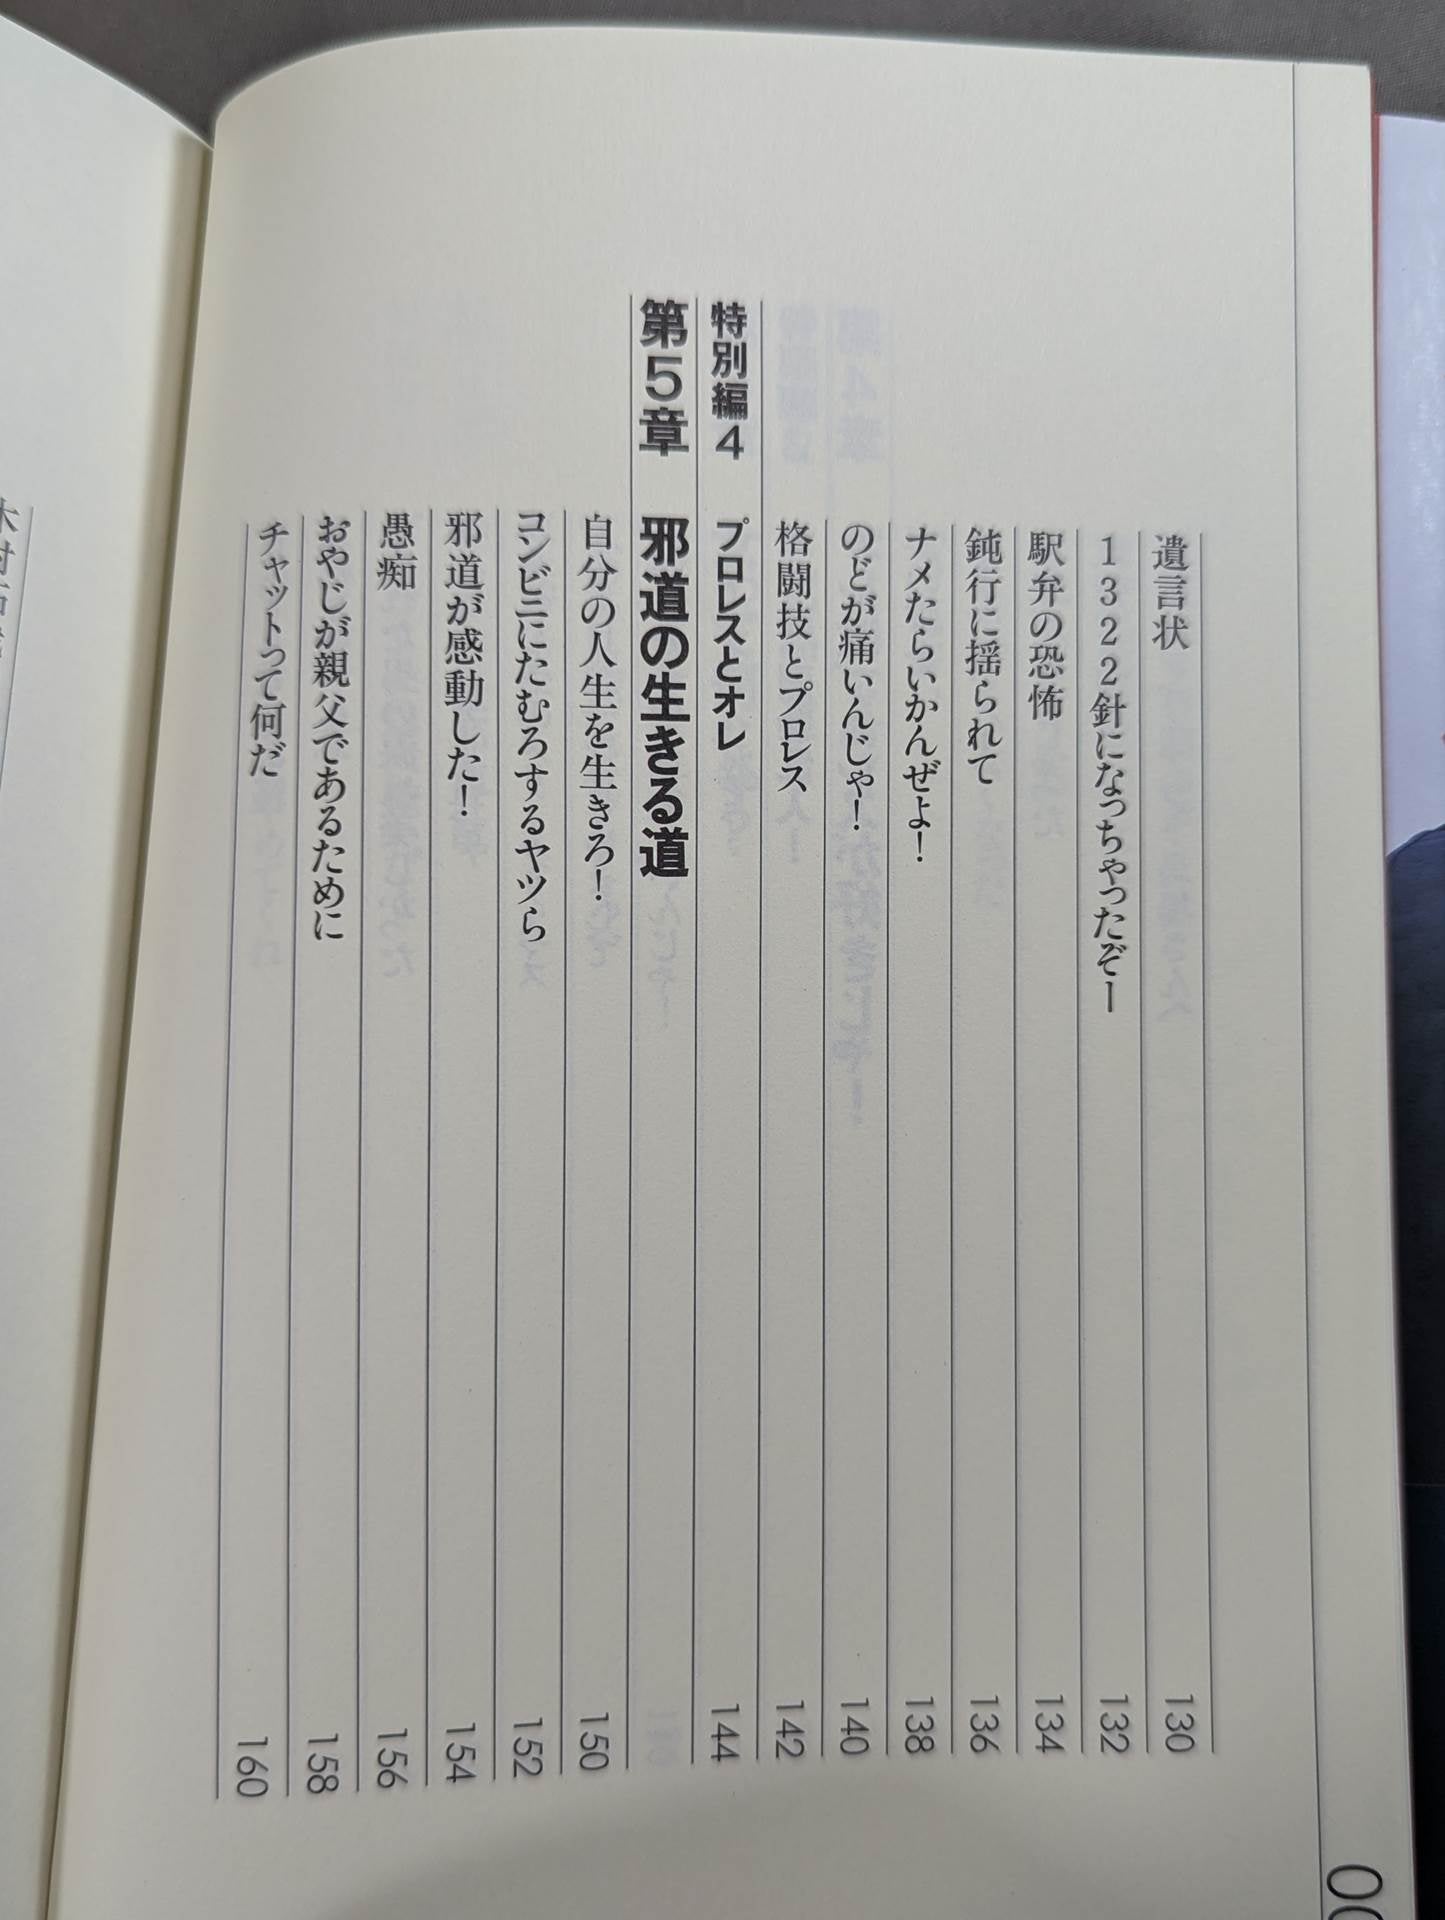 遺言状 130
1322針になっちゃったぞー 132
駅弁の恐怖 134
鈍行に揺られて 136
ナメたらいかんぜよ！ 138
のどが痛いんじゃ！ 140
格闘技とプロレス 142
特別編4 プロレスとオレ 144
第5章 邪道の生きる道
自分の人生を生きろ！ 150
コンビニにたむろするヤツら 152
邪道が感動した！ 154
愚痴 156
おやじが親父であるために 158
チャットって何だ 160